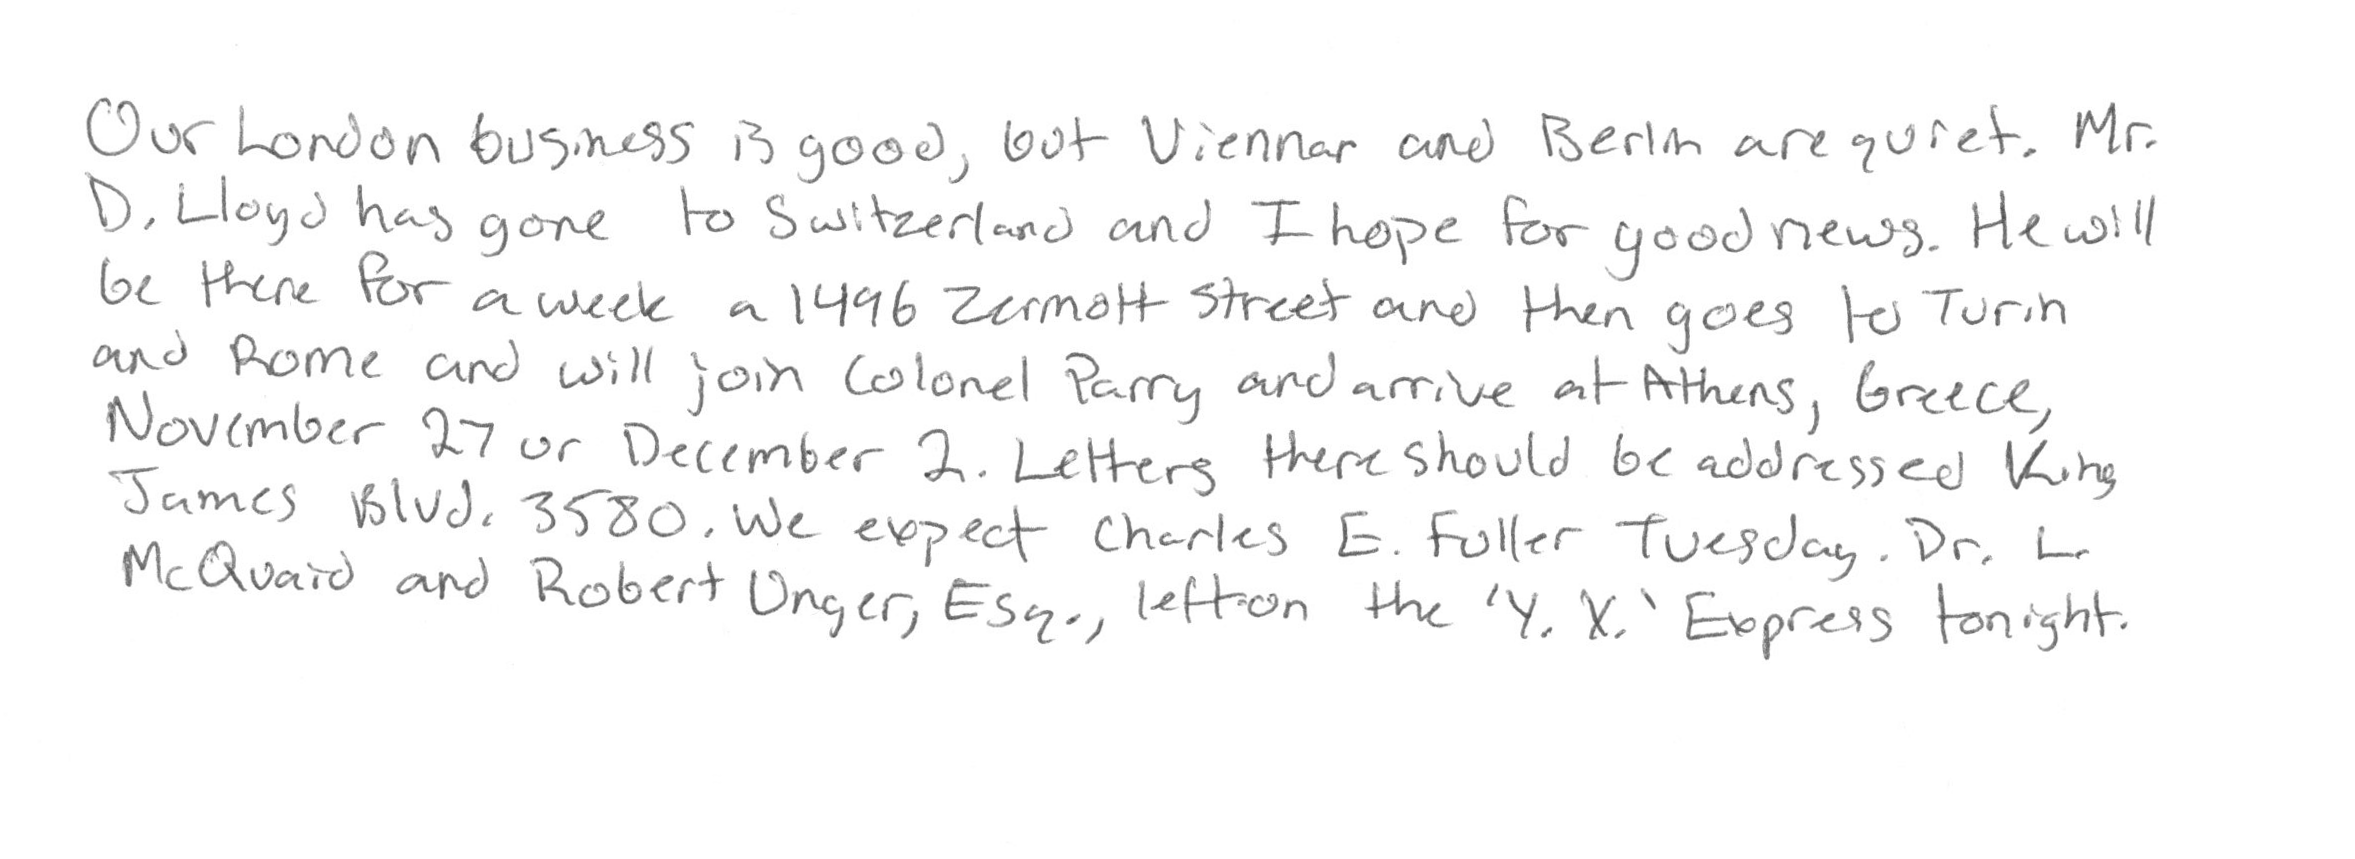 Our London business is good, but Viennar and Berlin are quiet. Mr.
D. Lloyd has gone to Switzerland and I hope for good news. He will
be there for a week a 1496 Zermott Street and then goes to Turin
and Rome and will join Colonel Parry and arrive at Athens, Greece,
November 27 or December 2. Letters there should be addressed King
James Blvd. 3580. We expect Charles E. Fuller Tuesday. Dr. L.
McQuaid and Robert Unger, Esq., left on the 'Y. X.' Express tonight.